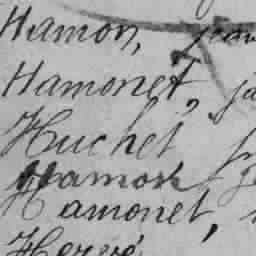 Hamon,
Hamonet,
Huchet
Hamon
Hamonet,
Hervé